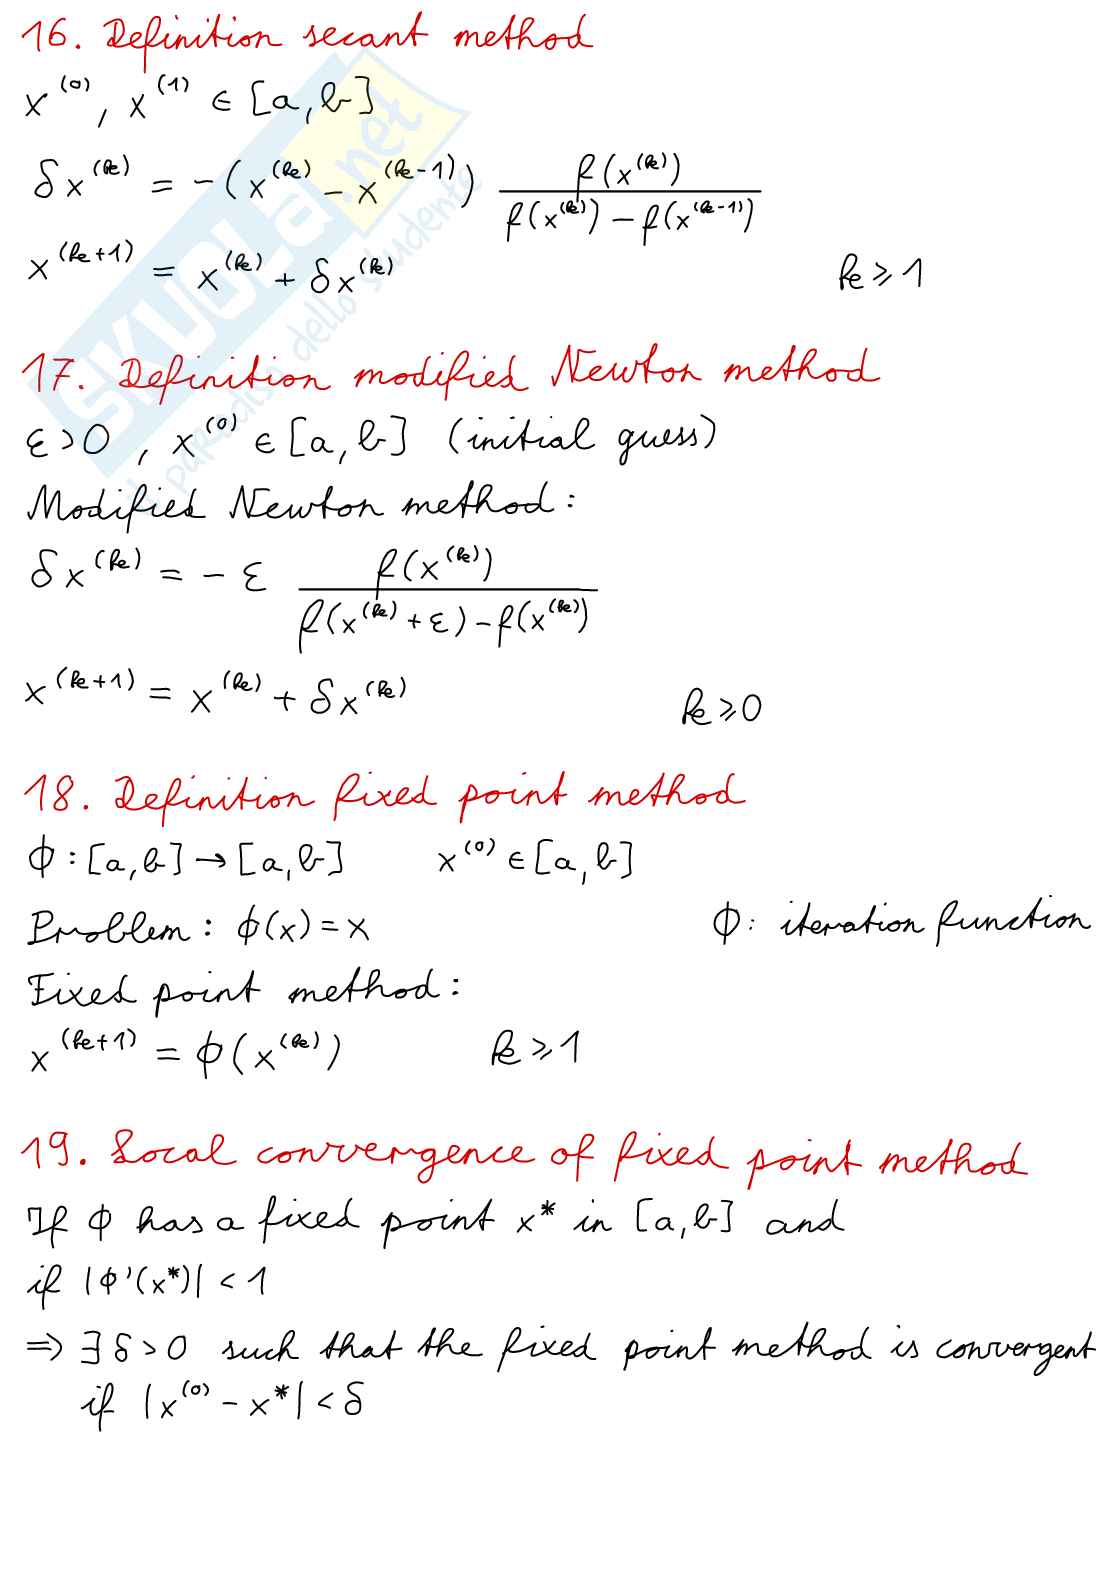 16. Definition secant method
x^(0), x^(1) ∈ [a, b]
δx^(k) = -(x^(k) - x^(k-1)) f(x^(k)) / (f(x^(k)) - f(x^(k-1)))
x^(k+1) = x^(k) + δx^(k) k ⩾ 1
17. Definition modified Newton method
ε > 0, x^(0) ∈ [a, b] (initial guess)
Modified Newton method:
δx^(k) = - ε f(x^(k)) / (f(x^(k) + ε) - f(x^(k)))
x^(k+1) = x^(k) + δx^(k) k ⩾ 0
18. Definition fixed point method
ϕ: [a, b] → [a, b] x^(0) ∈ [a, b]
Problem: ϕ(x) = x ϕ: iteration function
Fixed point method:
x^(k+1) = ϕ(x^(k)) k ⩾ 1
19. Local convergence of fixed point method
If ϕ has a fixed point x* in [a, b] and
if |ϕ'(x*)| < 1
⇒ ∃ δ > 0 such that the fixed point method is convergent
if |x^(0) - x*| < δ
SKUOLA.net
il paradiso dello studente